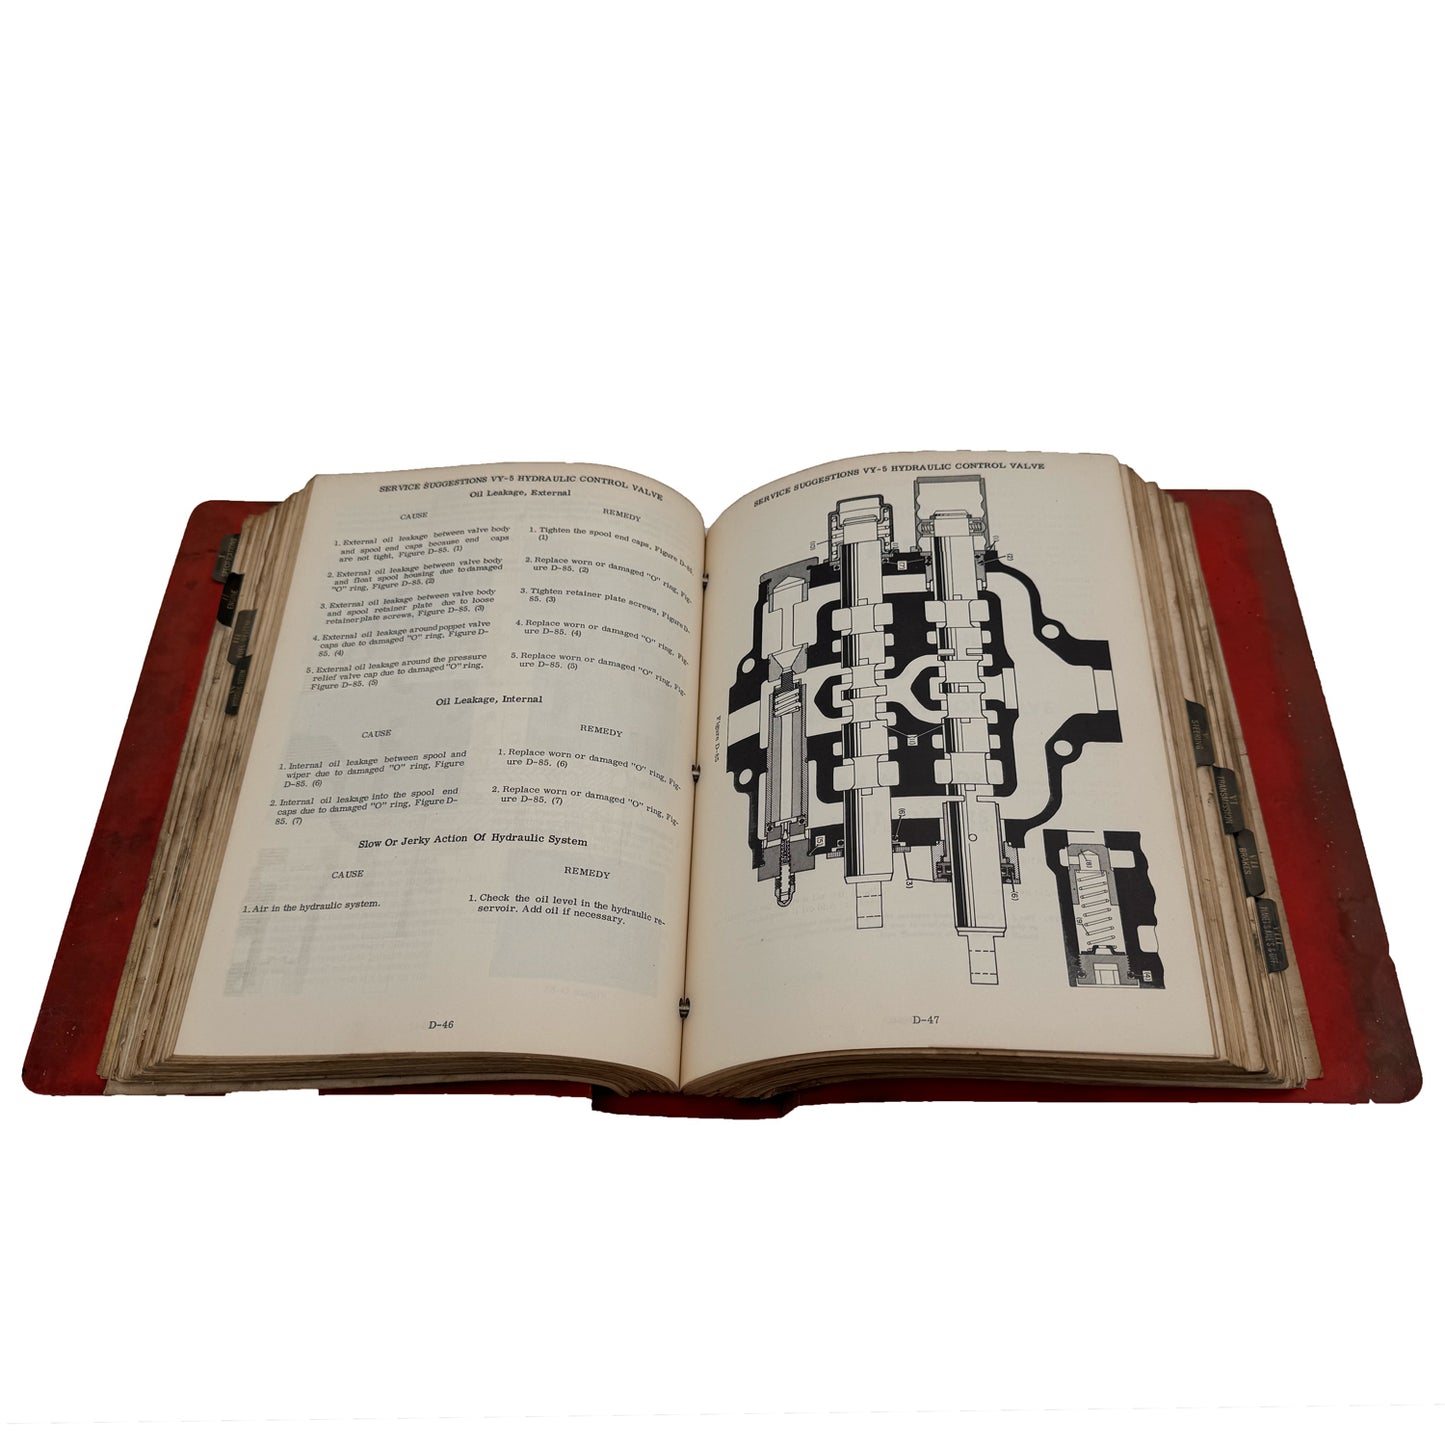 SERVICE SUGGESTIONS VY-5 HYDRAULIC CONTROL VALVE
Oil Leakage, External
CAUSE
1. External oil leakage between valve body
and spool end caps because end caps
are not tight, Figure D-85. (1)
2. External oil leakage between valve body
and float spool housing due to damaged
"O" ring, Figure D-85. (2)
3. External oil leakage between valve body
and spool retainer plate due to loose
retainer plate screws, Figure D-85. (3)
4. External oil leakage around poppet valve
caps due to damaged "O" ring, Figure D-
85. (4)
5. External oil leakage around the pressure
relief valve cap due to damaged "O" ring,
Figure D-85. (5)
REMEDY
1. Tighten the spool end caps, Figure D-85.
(1)
2. Replace worn or damaged "O" ring, Fig-
ure D-85. (2)
3. Tighten retainer plate screws, Figure D-
85. (3)
4. Replace worn or damaged "O" ring, Fig-
ure D-85. (4)
5. Replace worn or damaged "O" ring, Fig-
ure D-85. (5)
Oil Leakage, Internal
CAUSE
1. Internal oil leakage between spool and
wiper due to damaged "O" ring, Figure
D-85. (6)
2. Internal oil leakage into the spool end
caps due to damaged "O" ring, Figure D-
85. (7)
REMEDY
1. Replace worn or damaged "O" ring, Fig-
ure D-85. (6)
2. Replace worn or damaged "O" ring, Fig-
ure D-85. (7)
Slow Or Jerky Action Of Hydraulic System
CAUSE
1. Air in the hydraulic system.
REMEDY
1. Check the oil level in the hydraulic re-
servoir. Add oil if necessary.
D-46
SERVICE SUGGESTIONS VY-5 HYDRAULIC CONTROL VALVE
Figure D-85
(10)
(5)
(6)
(3)
(6)
(8)
(9)
D-47
ENGINE
V
STEERING
VI
TRANSMISSION
VII
BRAKES
VIII